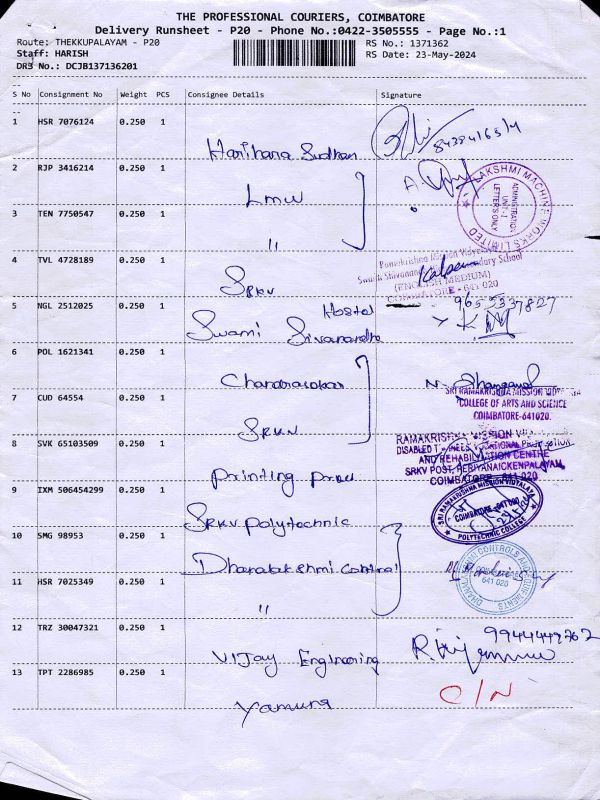 THE PROFESSIONAL COURIERS, COIMBATORE
Delivery Runsheet - P20 - Phone No.:0422-3505555 - Page No.:1
Route: THEKKUPALAYAM - P20
RS No.: 1371362
Staff: HARISH
RS Date: 23-May-2024
DRS No.: DCJB137136201
S No Consignment No Weight PCS Consignee Details Signature
1 HSR 7076124 0.250 1
Harihara Sudhan
2 RJP 3416214 0.250 1
LMW
LAKSHMI MACHINE WORKS LIMITED
ADMINISTRATION
UNIT-I
LETTERS ONLY
3 TEN 7750547 0.250 1
"
4 TVL 4728189 0.250 1
SRKV
Ramakrishna Mission Vidyalaya
(ENGLISH MEDIUM)
COIMBATORE - 641 020
5 NGL 2512025 0.250 1
Hostel
9655337827
Swami Sivanandha
6 POL 1621341 0.250 1
Chandrasekar
7 CUD 64554 0.250 1
SRKV
SRI RAMAKRISHNA MISSION VIDYALAYA
COLLEGE OF ARTS AND SCIENCE
COIMBATORE-641020.
8 SVK 65103509 0.250 1
Printing Press
RAMAKRISHNA MISSION
AND REHABILITATION CENTRE
SRKV POST, PERIYANAICKENPALAYAM,
COIMBATORE - 641 020
9 IXM 506454299 0.250 1
SRKV Polytechnic
SRI RAMAKRISHNA MISSION VIDYALAYA
COIMBATORE - 641 020
POLYTECHNIC COLLEGE
10 SMG 98953 0.250 1
Dhanalakshmi Control
641 020
11 HSR 7025349 0.250 1
"
12 TRZ 30047321 0.250 1
Vijay Engineering
9944449762
13 TPT 2286985 0.250 1
Yamuna
C/N